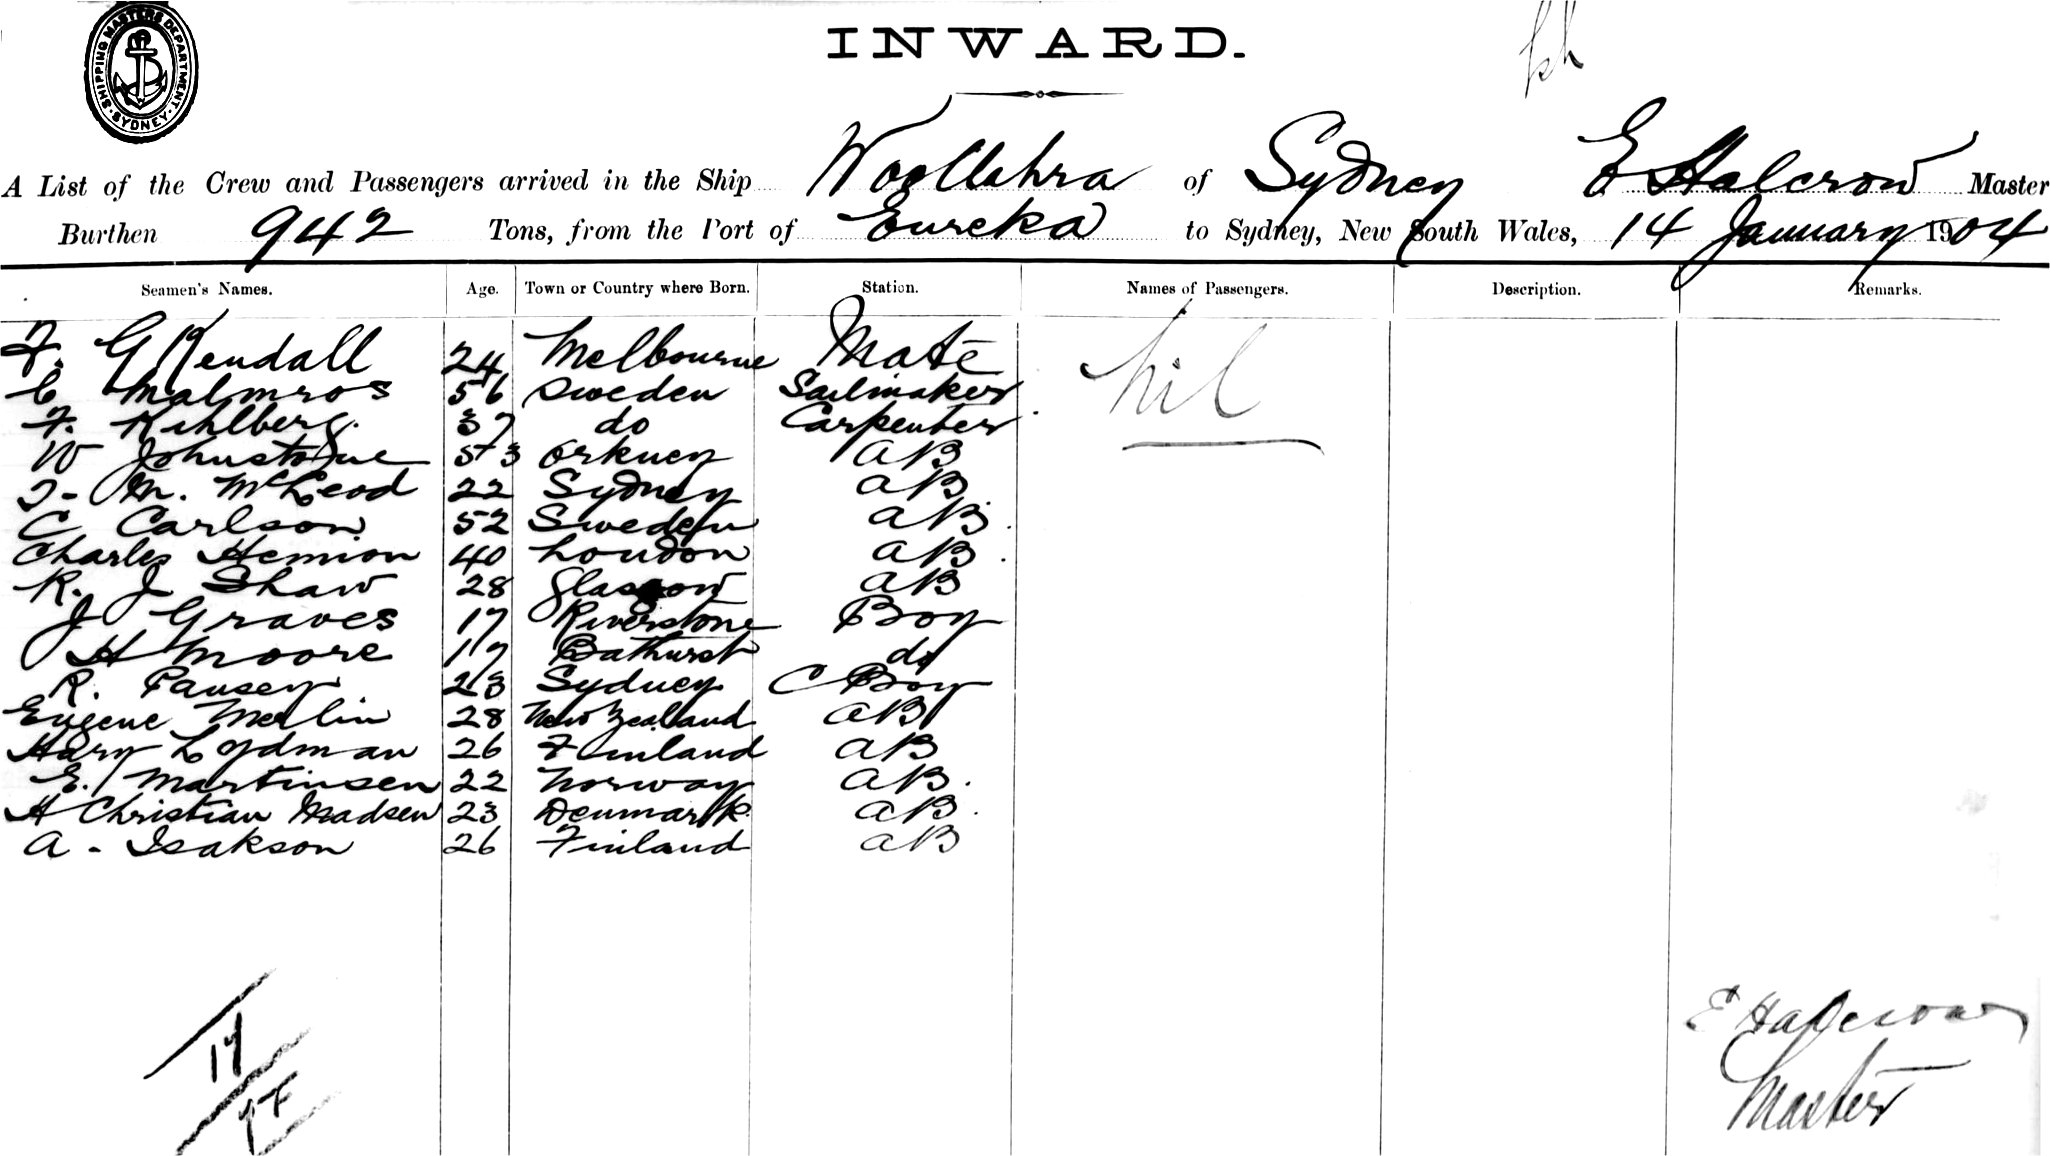 SHIPPING MASTERS DEPARTMENT. SYDNEY.
INWARD.
A List of the Crew and Passengers arrived in the Ship Woollahra of Sydney E Halcrow Master
Burthen 942 Tons, from the Port of Eureka to Sydney, New South Wales, 14 January 1904
Seamen's Names. Age. Town or Country where Born. Station. Names of Passengers. Description. Remarks.
F. G Kendall 24 Melbourne Mate nil
C Malmros 56 Sweden Sailmaker
F. Kihlberg. 37 do Carpenter
W Johnstone 53 Orkney AB
J. M. McLeod 22 Sydney AB
C Carlson 52 Sweden AB.
Charles Hemion 40 London AB.
R. J Shaw 28 Glasgow AB
J Graves 17 Riverstone Boy
H Moore 17 Bathurst do
R. Pausey 23 Sydney C Boy
Eugene Merlin 28 New Zealand AB
Hary Lydman 26 Finland AB
E. Martinsen 22 Norway AB.
H Christian Madsen 23 Denmark AB.
A. Isakson 26 Finland AB
E Halcrow
Master